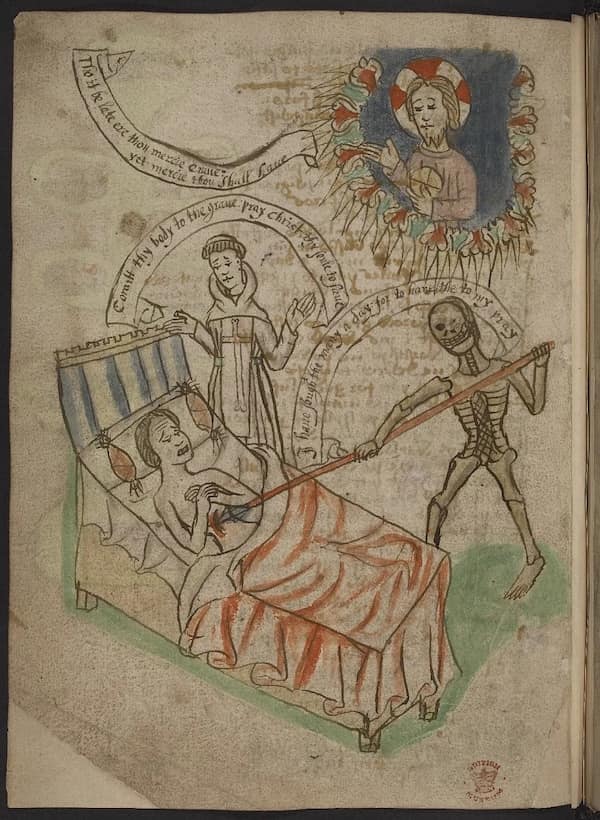 Tho it be late ere thou mercie crave:
yet mercie thou shalt have
Comitt thy body to the grave: pray christ thy soule to saue
I haue sough the many a day: for to haue the to my pray